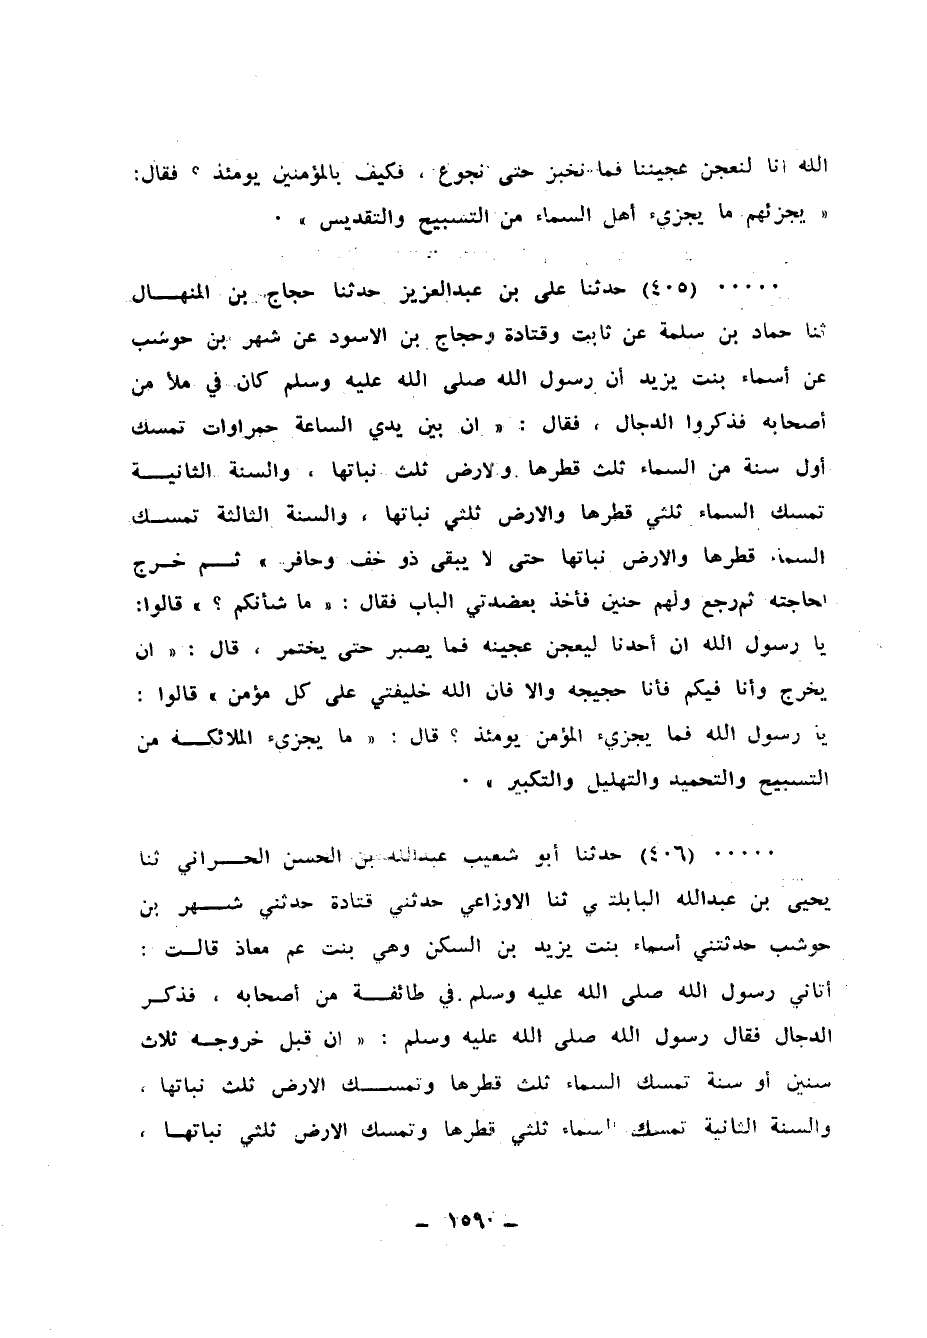 الله انا لنعجن عجيننا فما نخبز حتى نجوع ، فكيف بالمؤمنين يومئذ ؟ فقال:
« يجزئهم ما يجزيء أهل السماء من التسبيح والتقديس » ٠
٠٠٠٠٠ (٤٠٥) حدثنا علي بن عبدالعزيز حدثنا حجاج بن المنهال
ثنا حماد بن سلمة عن ثابت وقتادة وحجاج بن الاسود عن شهر بن حوشب
عن أسماء بنت يزيد أن رسول الله صلى الله عليه وسلم كان في ملأ من
أصحابه فذكروا الدجال ، فقال : « ان بين يدي الساعة حمراوات تمسك
أول سنة من السماء ثلث قطرها ولارض ثلث نباتها ، والسنة الثانية
تمسك السماء ثلثي قطرها والارض ثلثي نباتها ، والسنة الثالثة تمسك
السماء قطرها والارض نباتها حتى لا يبقى ذو خف وحافر » ثم خرج
لحاجته ثم رجع ولهم حنين فأخذ بعضدتي الباب فقال : « ما شأنكم ؟ » قالوا:
يا رسول الله ان أحدنا ليعجن عجينه فما يصبر حتى يختمر ، قال : « ان
يخرج وأنا فيكم فأنا حجيجه والا فان الله خليفتي على كل مؤمن » قالوا :
يا رسول الله فما يجزيء المؤمن يومئذ ؟ قال : « ما يجزيء الملائكة من
التسبيح والتحميد والتهليل والتكبير » ٠
٠٠٠٠٠ (٤٠٦) حدثنا أبو شعيب عبدالله بن الحسن الحراني ثنا
يحيى بن عبدالله البابلتي ثنا الاوزاعي حدثني قتادة حدثني شهر بن
حوشب حدثتني أسماء بنت يزيد بن السكن وهي بنت عم معاذ قالت :
أتاني رسول الله صلى الله عليه وسلم في طائفة من أصحابه ، فذكر
الدجال فقال رسول الله صلى الله عليه وسلم : « ان قبل خروجه ثلاث
سنين أو سنة تمسك السماء ثلث قطرها وتمسك الارض ثلث نباتها ،
والسنة الثانية تمسك السماء ثلثي قطرها وتمسك الارض ثلثي نباتها ،
– ١٥٩٠ –